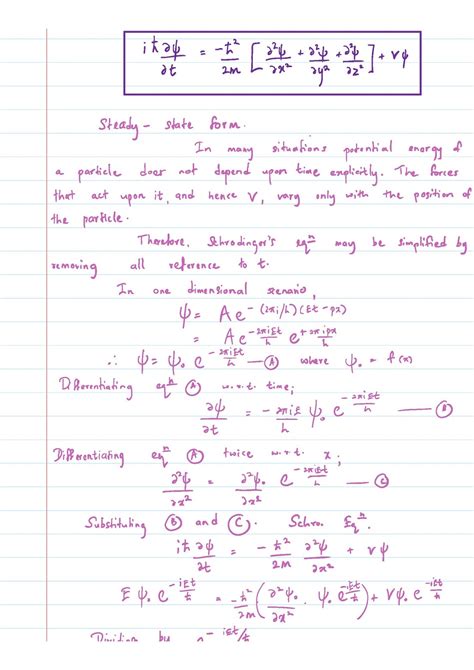 iħ ∂ψ/∂t = -ħ²/2m [∂²ψ/∂x² + ∂²ψ/∂y² + ∂²ψ/∂z²] + Vψ
Steady - state form.
In many situations potential energy of
a particle does not depend upon time explicitly. The forces
that act upon it, and hence V, vary only with the position of
the particle.
Therefore, Schrodinger's eqⁿ may be simplified by
removing all reference to t.
In one dimensional senario,
ψ = A e^{-(2πi/h)(Et-px)}
= A e^{-2πiEt/h} e^{+2πipx/h}
∴ ψ = ψ₀ e^{-2πiEt/h} — Ⓐ where ψ₀ = f(x)
Differentiating eqⁿ Ⓐ w.r.t. time;
∂ψ/∂t = -2πiE/h ψ₀ e^{-2πiEt/h} — Ⓑ
Differentiating eqⁿ Ⓐ twice w.r.t. x;
∂²ψ/∂x² = ∂²ψ₀/∂x² e^{-2πiEt/h} — Ⓒ
Substituting Ⓑ and Ⓒ. Schro. Eqⁿ.
iħ ∂ψ/∂t = -ħ²/2m ∂²ψ/∂x² + Vψ
E ψ₀ e^{-iEt/ħ} = -ħ²/2m (∂²ψ₀/∂x² . ψ₀ e^{-iEt/ħ}) + Vψ₀ e^{-iEt/ħ}
Division by e^{-iEt/ħ}